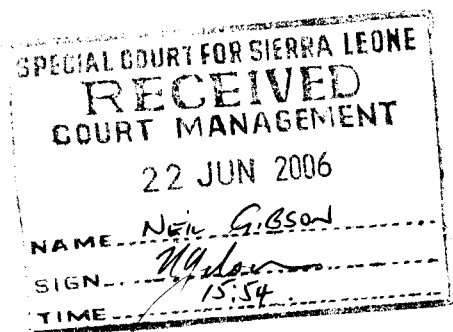 SPECIAL COURT FOR SIERRA LEONE
RECEIVED
COURT MANAGEMENT
22 JUN 2006
NAME NEIL GIBSON
SIGN NGibson
TIME 15:54